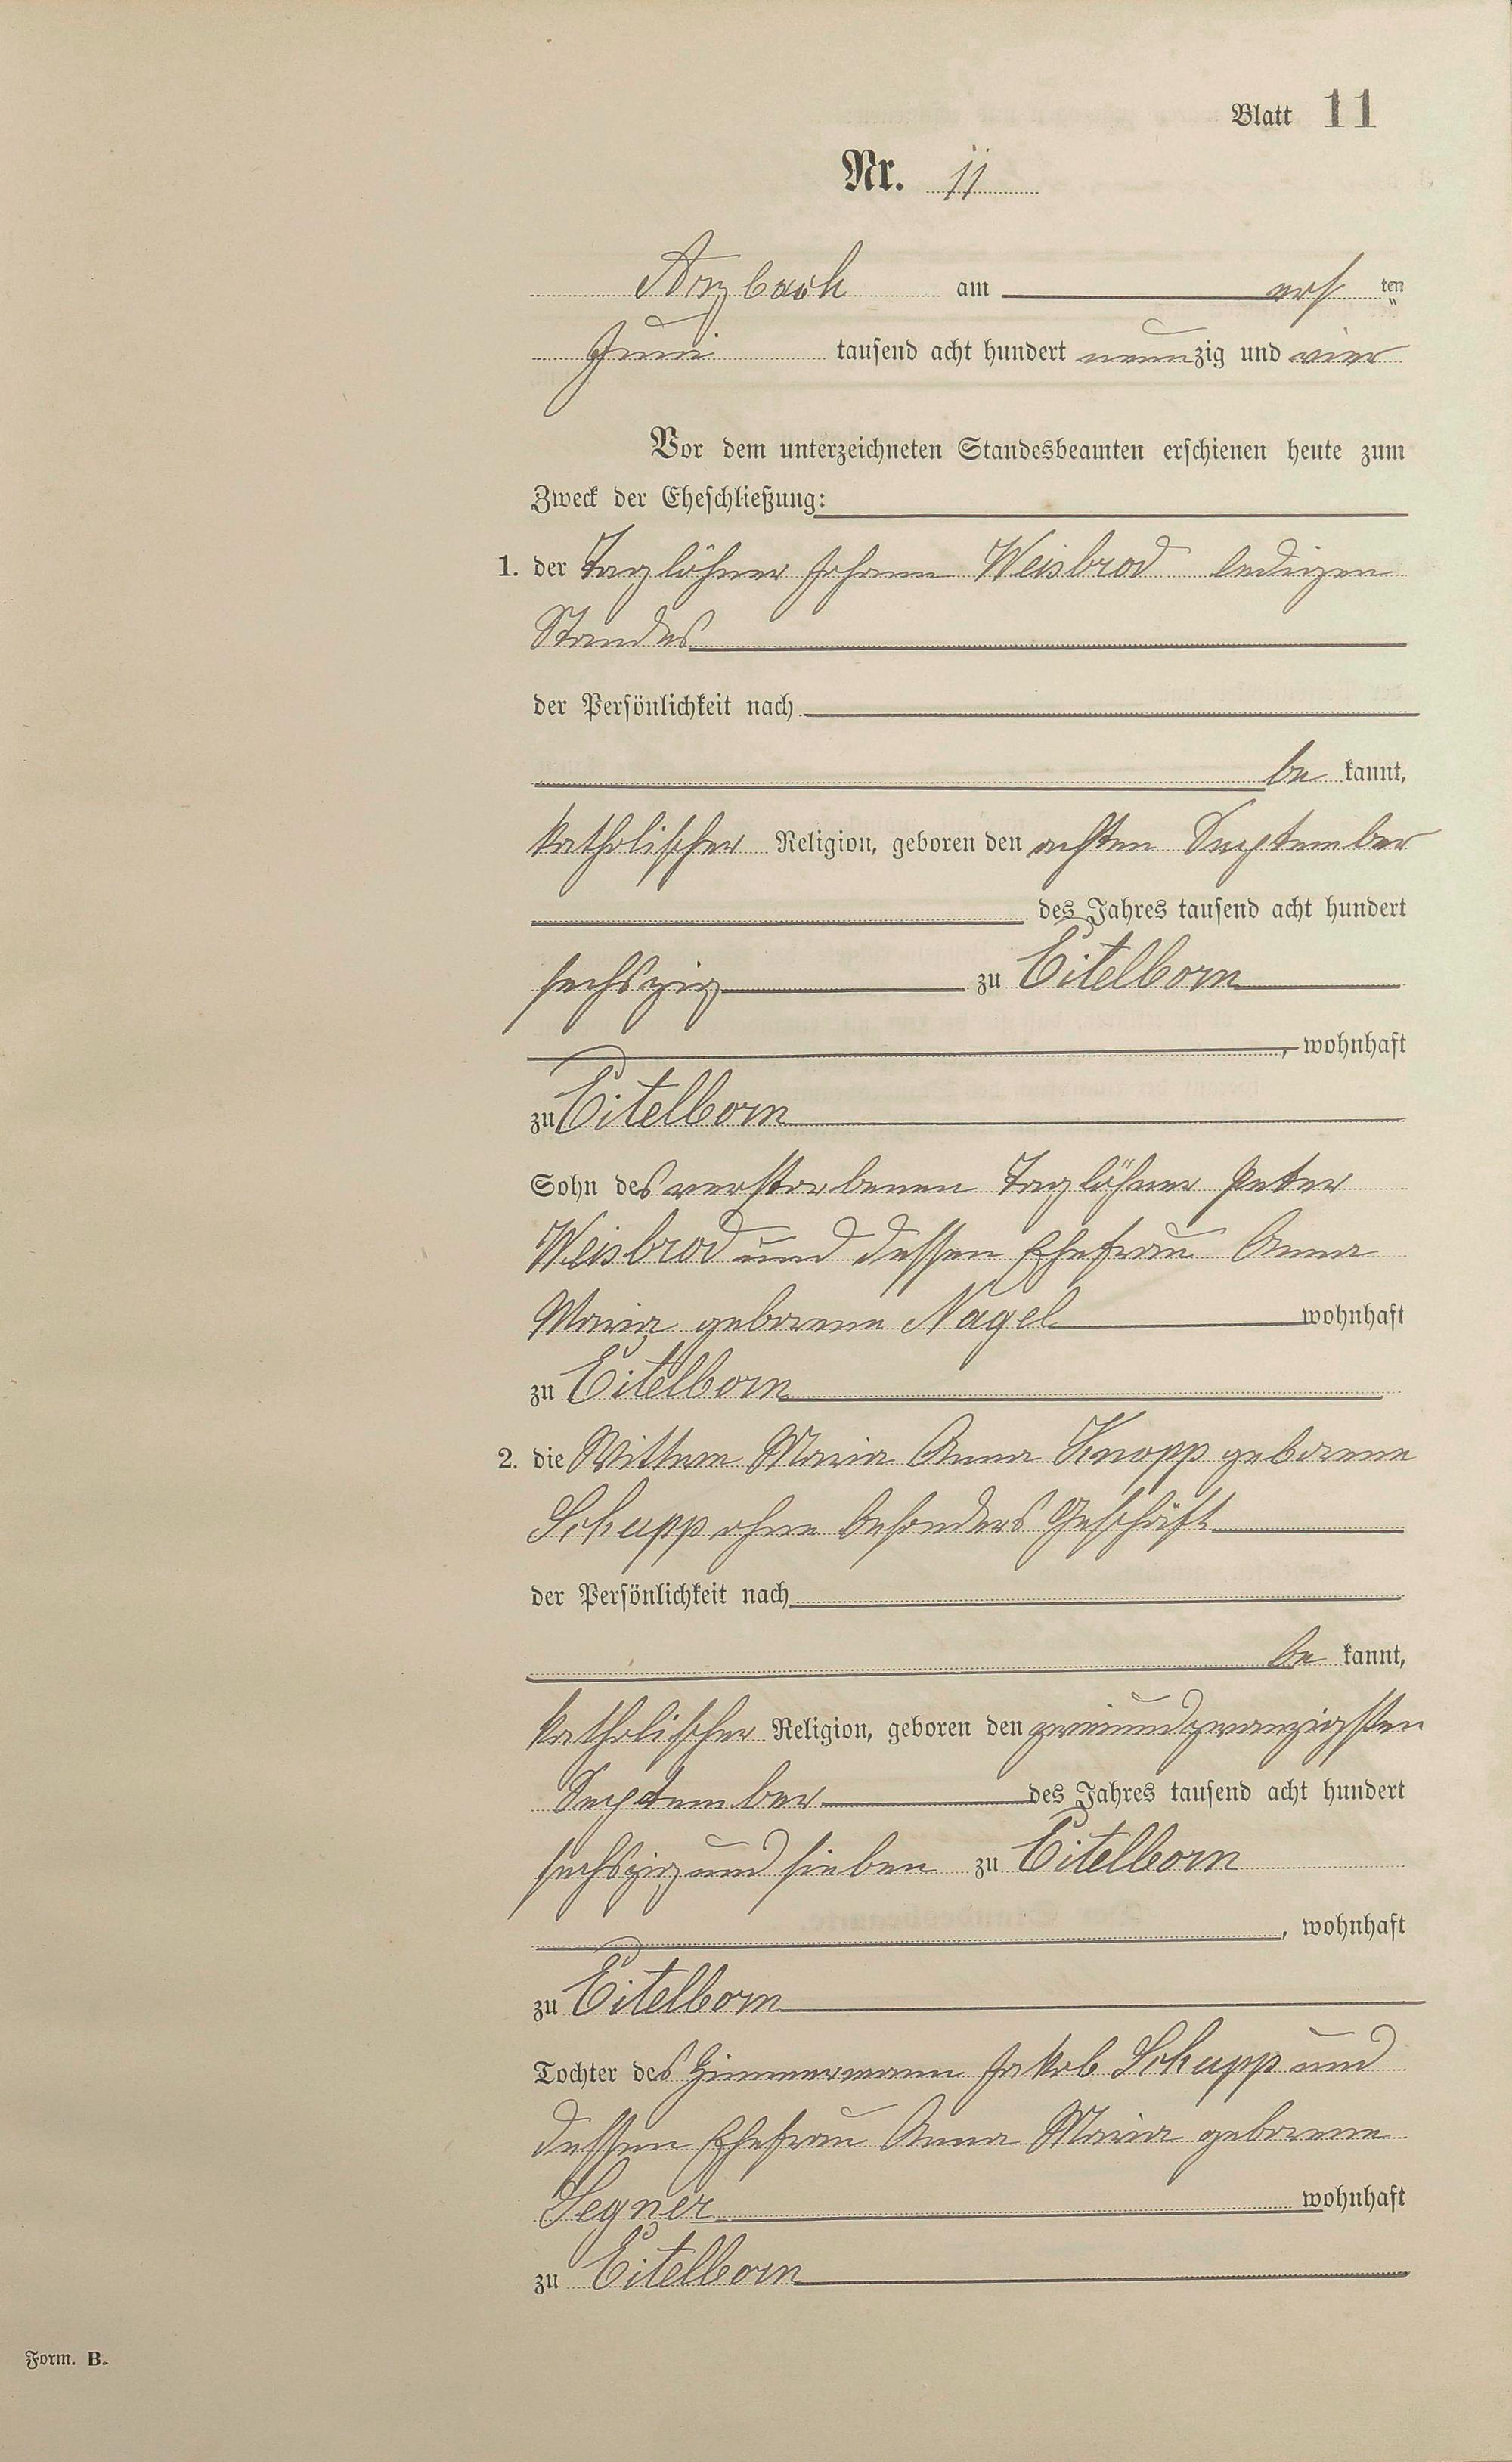 Blatt 11
Nr. 11
Arzbach am ersten
Juni tausend acht hundert neunzig und vier
Vor dem unterzeichneten Standesbeamten erschienen heute zum
Zweck der Eheschließung:
1. der Taglöhner Johann Weisbrod ledigen
Standes
der Persönlichkeit nach
be kannt,
katholischer Religion, geboren den achten September
des Jahres tausend acht hundert
sechszig zu Eitelborn
, wohnhaft
zu Eitelborn
Sohn des verstorbenen Taglöhner Peter
Weisbrod und dessen Ehefrau Anna
Maria geborene Nagel wohnhaft
zu Eitelborn
2. die Wittwe Maria Anna Knopp geborene
Schupp ohne besonders Geschäft
der Persönlichkeit nach
be kannt,
katholischer Religion, geboren den zweiundzwanzigsten
September des Jahres tausend acht hundert
sechszig und sieben zu Eitelborn
, wohnhaft
zu Eitelborn
Tochter des Zimmermann Jakob Schupp und
dessen Ehefrau Anna Maria geborene
Segner wohnhaft
zu Eitelborn
Form. B.